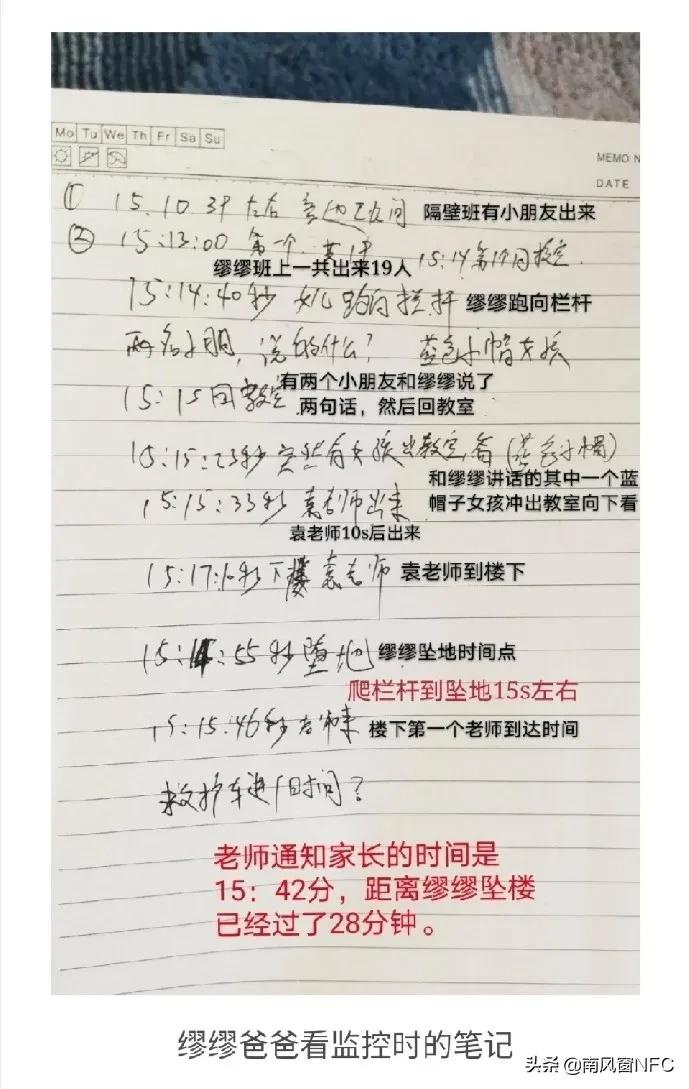 Mo Tu We Th Fr Sa Su
MEMO N
DATE
① 15.10.39 左右 旁边 间 隔壁班有小朋友出来
② 15:13:00 第一个 共 15:14第19回教室
缪缪班上一共出来19人
15:14:40秒 女儿跑向拦杆 缪缪跑向栏杆
两名小朋,说的什么? 蓝色小帽女孩
有两个小朋友和缪缪说了
15:15回教室 两句话,然后回教室
15:15:23秒突然有女孩出教室看(蓝色小帽)
和缪缪讲话的其中一个蓝
15:15:33秒 袁老师出来 帽子女孩冲出教室向下看
袁老师10s后出来
15:17:10秒下楼袁老师 袁老师到楼下
15:14:55秒坠地 缪缪坠地时间点
爬栏杆到坠地15s左右
15:15:46秒老师来 楼下第一个老师到达时间
救护车进 时间?
老师通知家长的时间是
15:42分,距离缪缪坠楼
已经过了28分钟。
缪缪爸爸看监控时的笔记
头条 @南风窗NFC